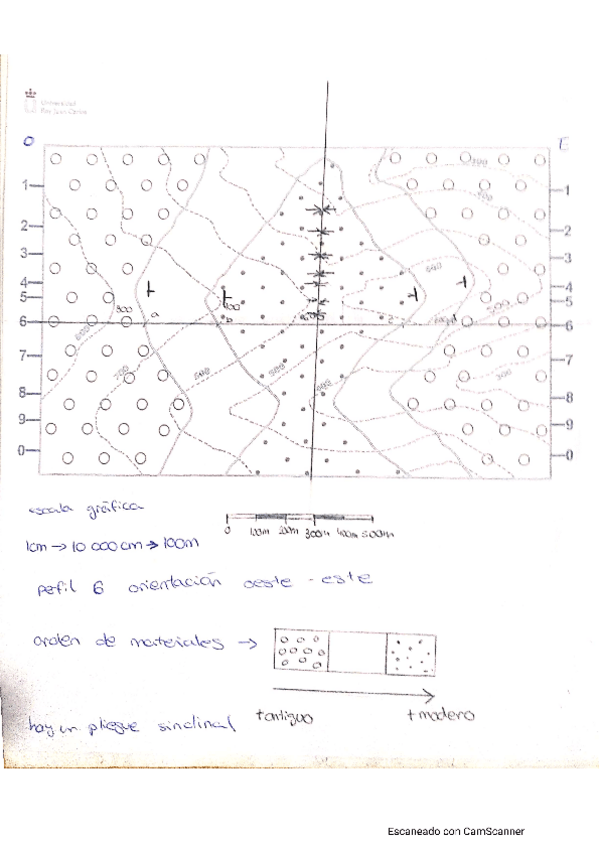 Universidad
Rey Juan Carlos
O E
1 1
2 2
3 3
4 4
5 5
6 6
7 7
8 8
9 9
0 0
300
400
600
500
800
a
b
c
d
600
700
600
500
400
300
escala gráfica
0 100m 200m 300m 400m 500m
1cm → 10 000cm → 100m
perfil 6 orientación oeste - este
orden de materiales →
+antiguo +moderno
hay un pliegue sinclinal
Escaneado con CamScanner